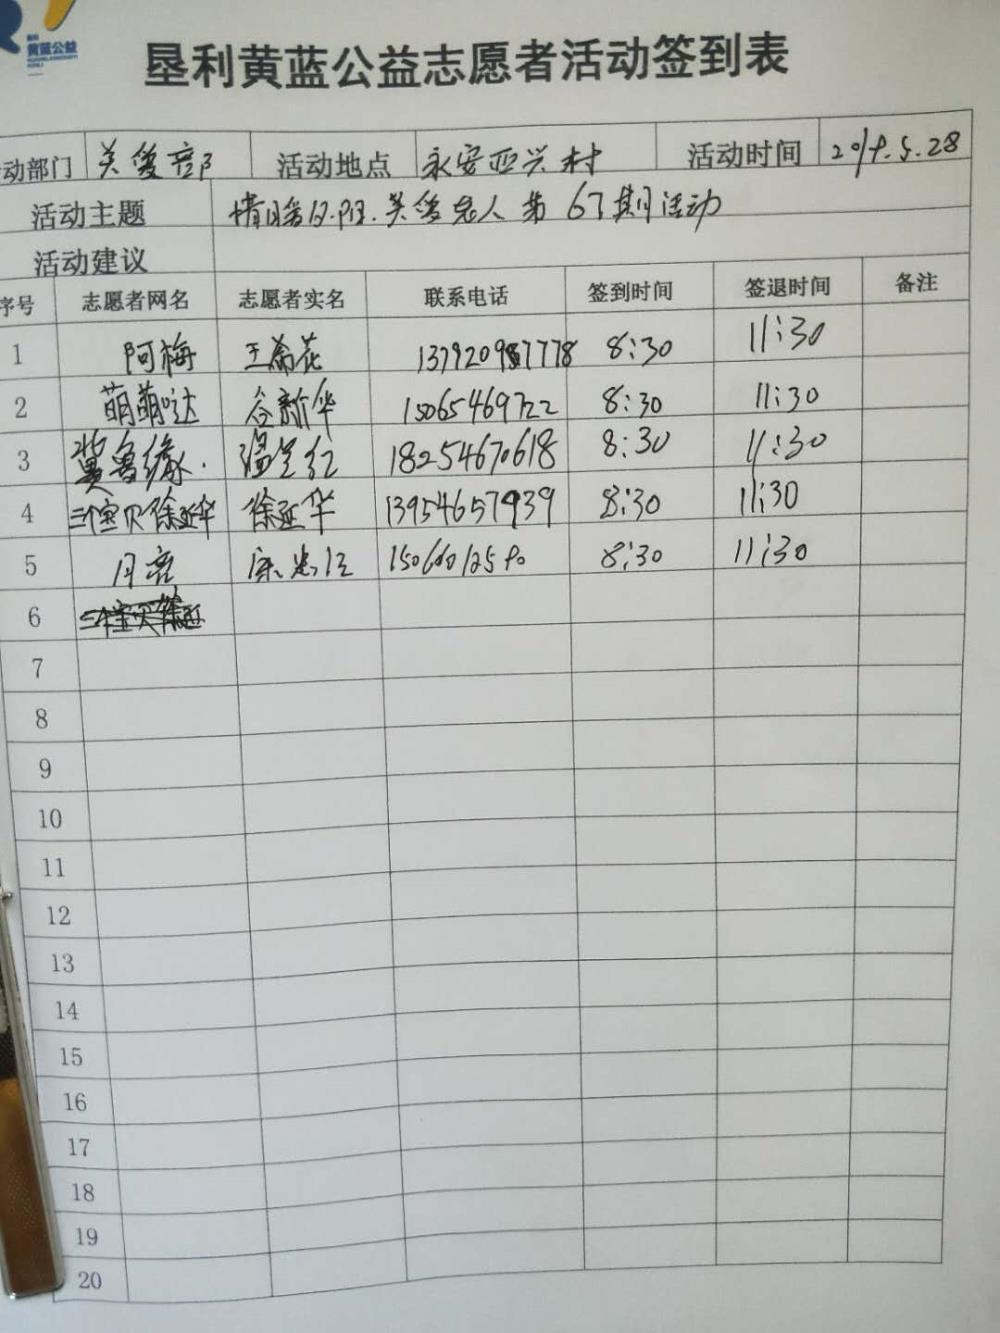 黄蓝公益
垦利黄蓝公益志愿者活动签到表
动部门 关爱部 活动地点 永安亚兴村 活动时间 2019.5.28
活动主题 情暖夕阳.关爱老人第67期活动
活动建议
序号 志愿者网名 志愿者实名 联系电话 签到时间 签退时间 备注
1 阿梅 8:30 11:30
2 萌萌哒 谷新华 15065469722 8:30 11:30
3 冀鲁缘. 18254670618 8:30 11:30
4 三个宝贝徐延华 徐延华 13954657939 8:30 11:30
5 月亮 8:30 11:30
6
7
8
9
10
11
12
13
14
15
16
17
18
19
20